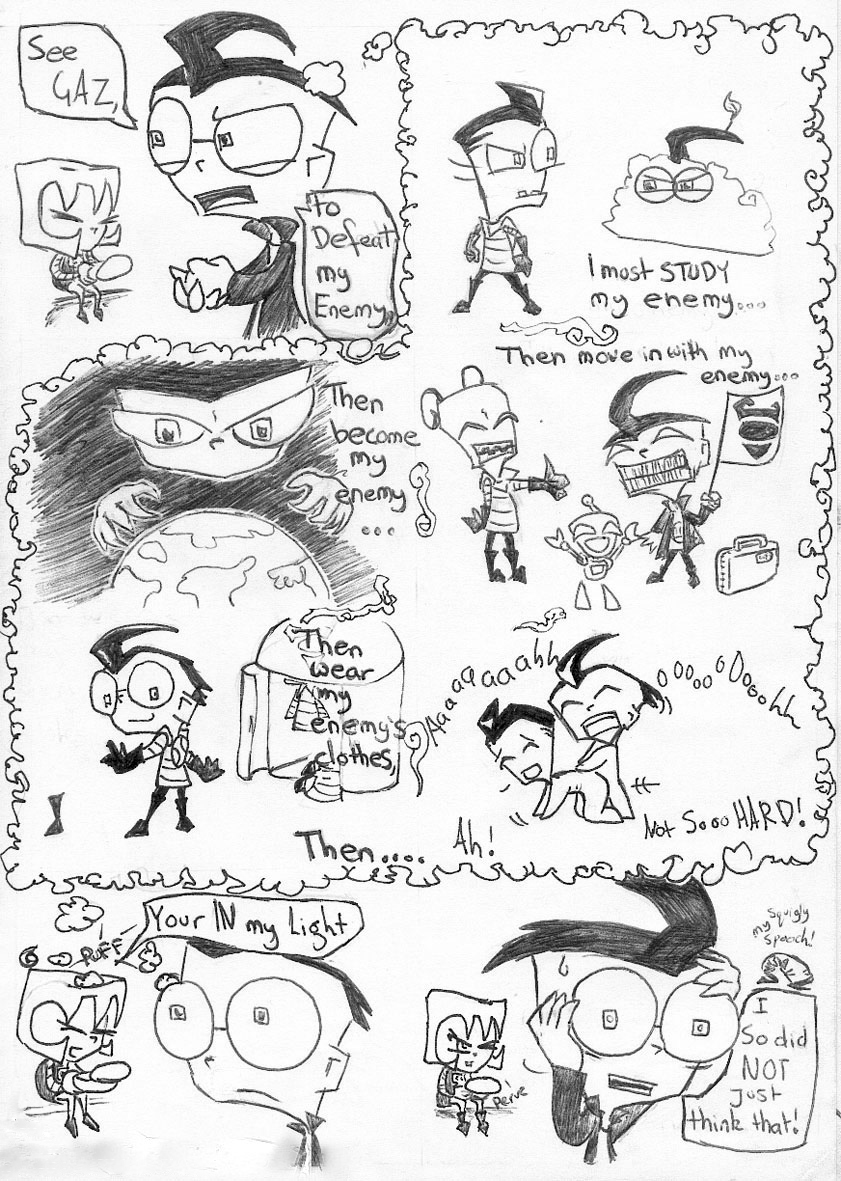 See
GAZ,
to
Defeat
my
Enemy,
I most STUDY
my enemy...
Then move in with my
enemy...
Then
become
my
enemy
...
Then
wear
my
enemy's
clothes,
Aaaaaaaahh
ooooooDooohh
Not Sooo HARD!
Ah!
Then....
PUFF
Your IN my Light
Perve
squigly
my
spooch!
I
So did
NOT
Just
think that!